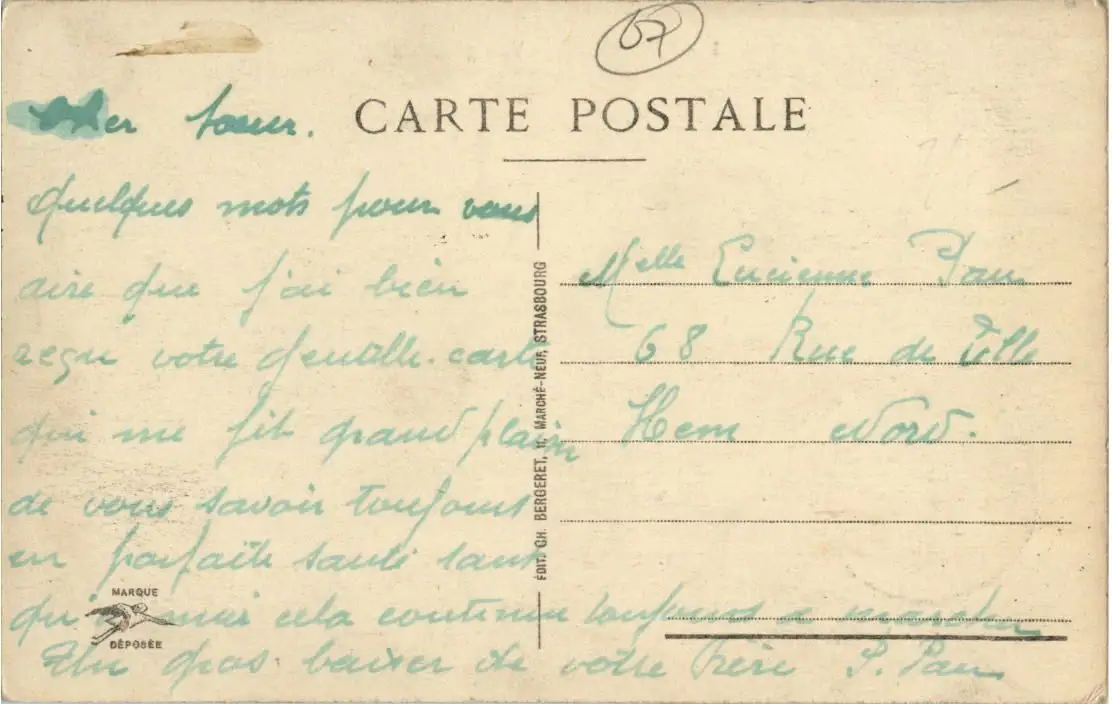 67
CARTE POSTALE
Cher sœur.
Quelques mots pour vous
dire que j'ai bien
reçu votre gentille carte
qui me fit grand plaisir
de vous savoir toujours
en parfaite santé tant
qu'a moi cela continue toujours a marcher
Un gros baiser de votre frère P. Pau
MARQUE
DÉPOSÉE
ÉDIT. CH. BERGERET, 11, MARCHÉ-NEUF, STRASBOURG
Melle Lucienne Pau
68 Rue de
Hem Nord.